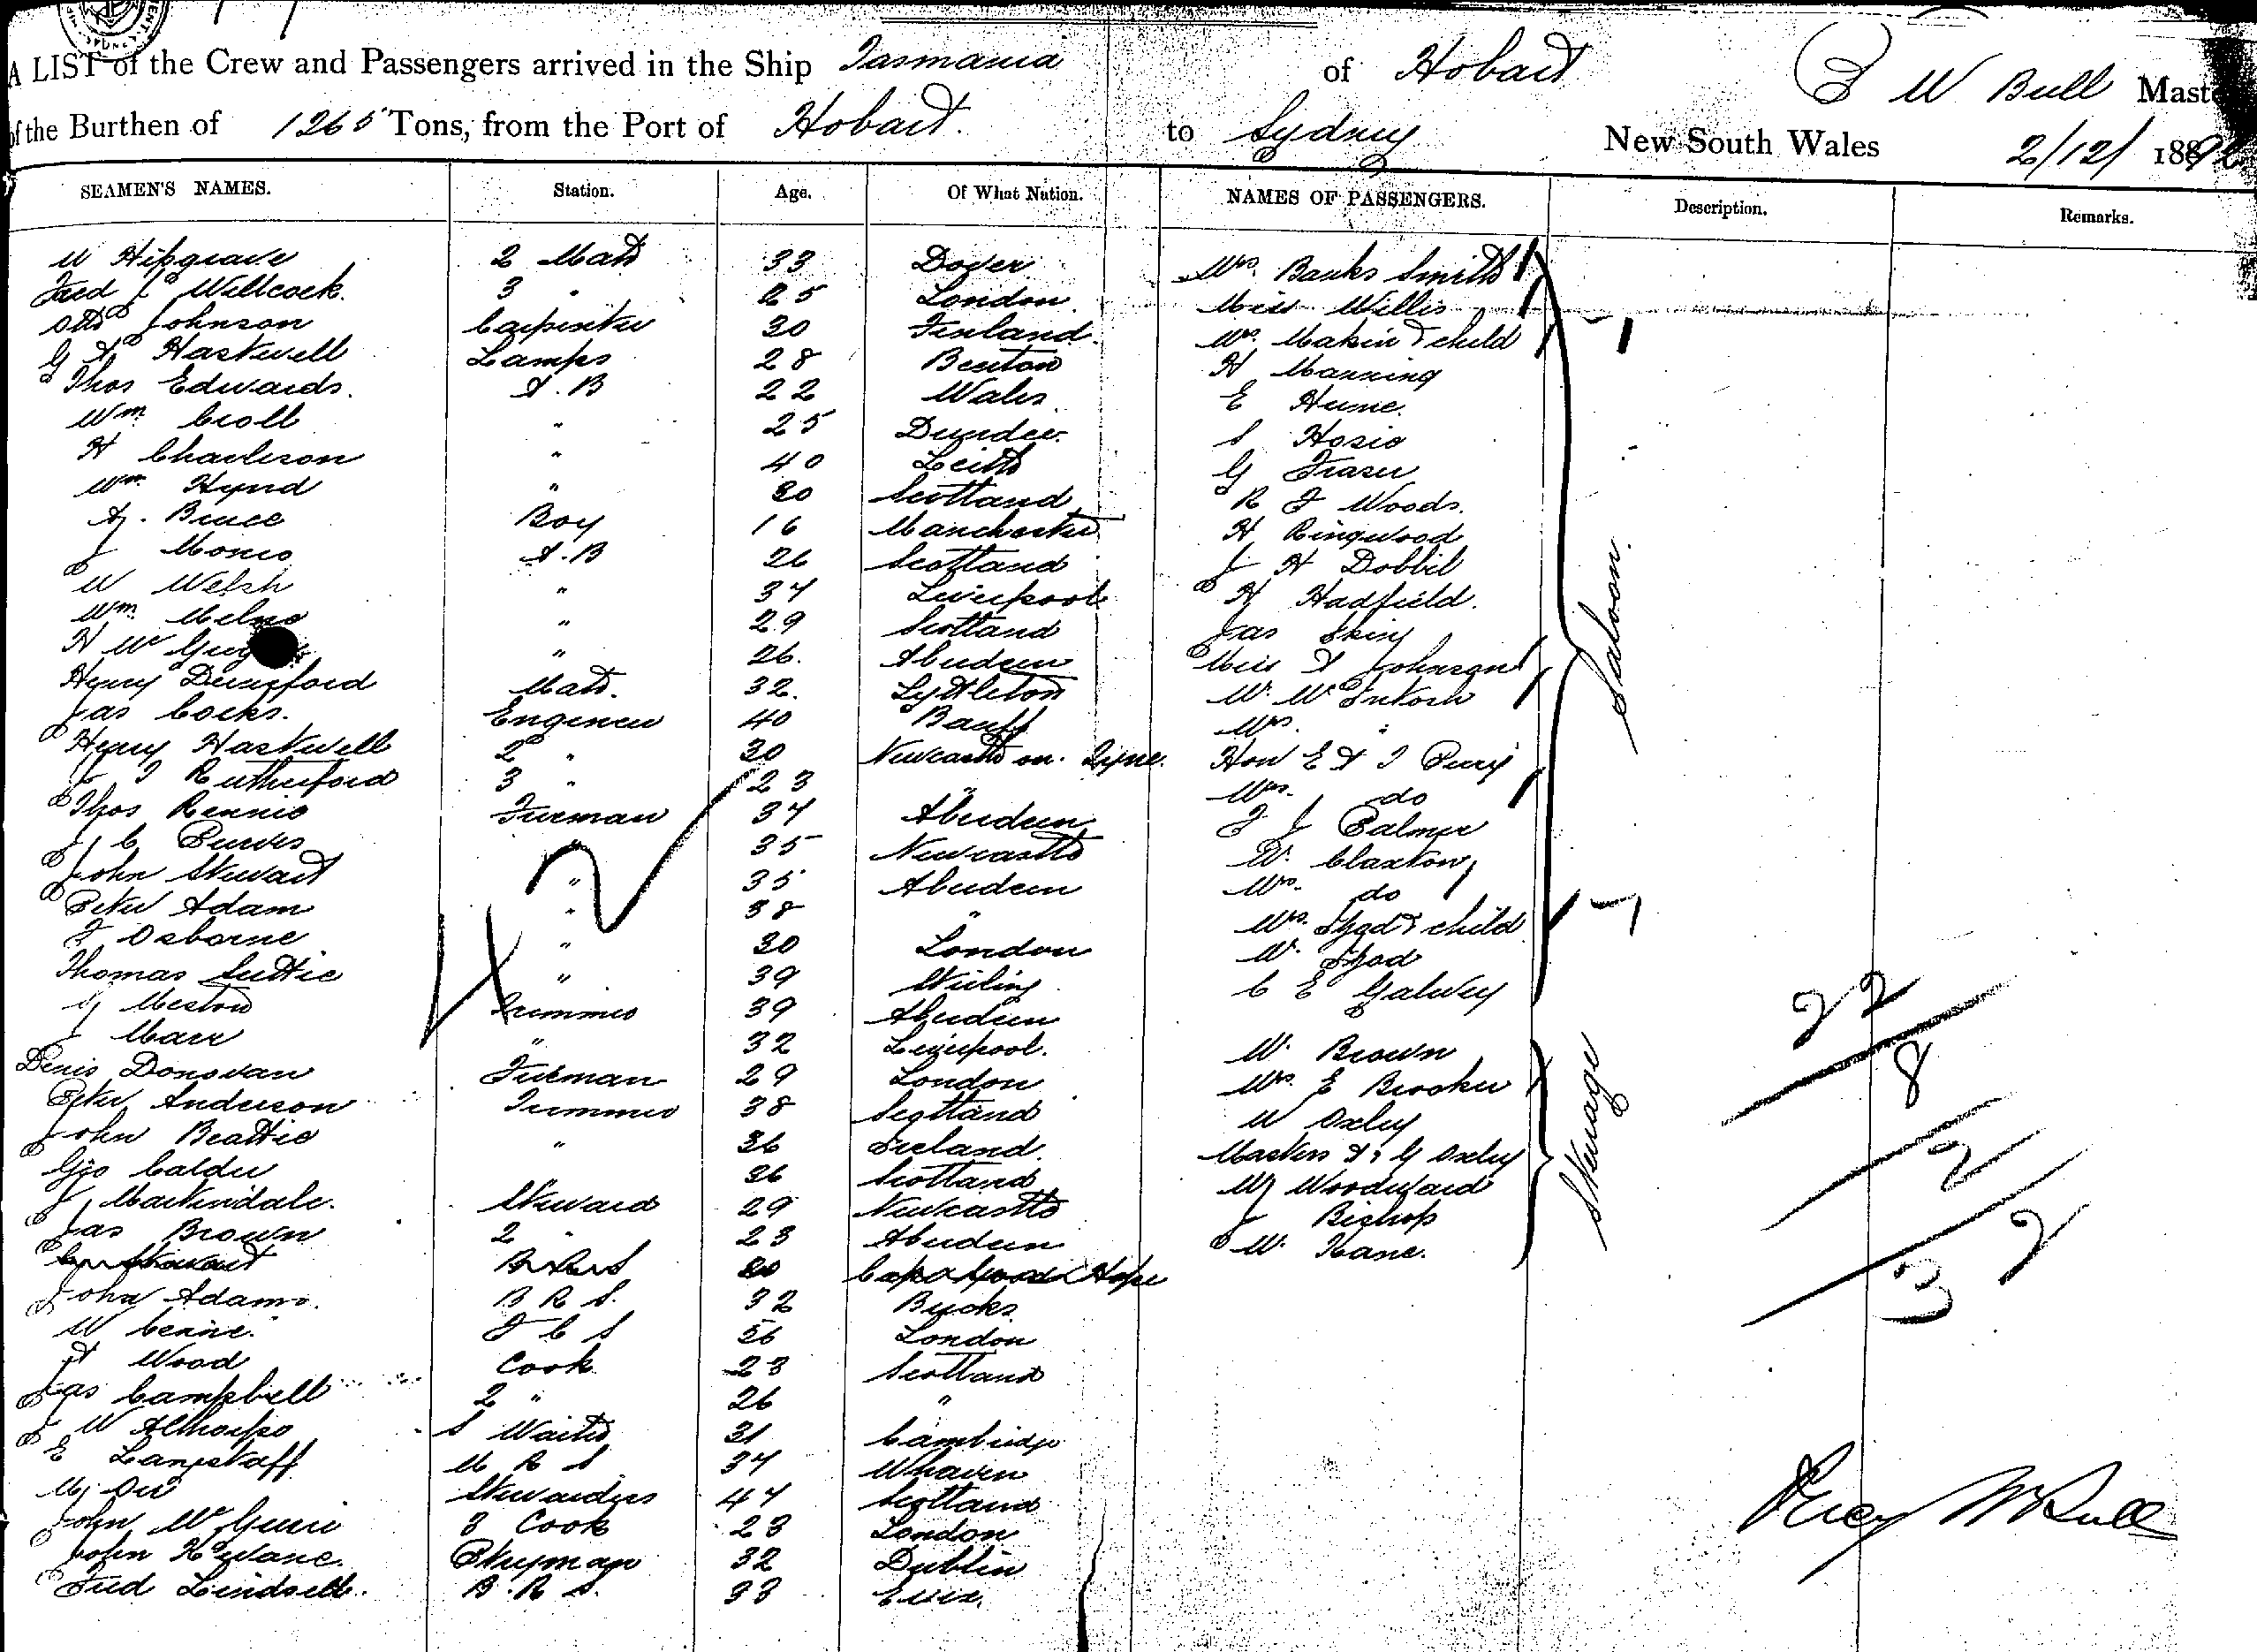 A LIST of the Crew and Passengers arrived in the Ship Tasmania of Hobart W Bull Master
of the Burthen of 1265 Tons, from the Port of Hobart to Sydney New South Wales 2/12/ 189
SEAMEN'S NAMES. Station. Age. Of What Nation. NAMES OF PASSENGERS. Description. Remarks.
W Hipgrave 2 Mate 33 Dover Mrs. Banks Smith
Fred Willcock. 3 " 25 London Miss Willis
Otto Johnson Carpenter 30 Finland. Mrs. Makin & child
G Haskwell Lamps 28 Benton H Manning
Thos Edwards. A.B 22 Wales E Hume.
Wm. Croll " 25 Dundee. S Hosie
H Charleson " 40 Leith G Fraser
Wm. Hynd " Scotland R F Woods.
A. Bruce Boy 16 Manchester H Ringwood
J Monro A.B 26 Scotland J H Dobbil
W Welsh " 34 Liverpool H Hadfield.
Wm. Melne " 29 Scotland Jas
H Mc " 26. Aberdeen Miss A Johnson
Henry Dunsford Mate. 32. Lyttleton W. McIntosh
Jas Cocks. Engineer 40 Banff Mrs. "
Henry Haskwell 2 " 30 Newcastle on. Tyne. Hon E A J Perry
J J Rutherford 3 " 23 " Mrs. do
Thos Rennie Fireman 34 Aberdeen F J Palmer
J C Purves " 35 Newcastle W. Claxton
John Stewart " 35 Aberdeen Mrs. do
Peter Adam " 38 " Mrs. & child
F Osborne " 30 London W.
Thomas Suttie " 39 Stirling C E Galwey
Meston Trimmer 39 Aberdeen
J Marr " 32 Liverpool. W. Brown
Denis Donovan Fireman 29 London Mrs. E Brooker
Peter Anderson Trimmer 38 Scotland W Oxley
John Beattie " 36 Ireland. Masters A & G Oxley
Geo Calder 26 Scotland W Woodward
J Martindale. Steward 29 Newcastle J Bishop
Jas Brown 2 " 23 Aberdeen W. Kane.
Stewart Cape Good Hope
John Adams. B R S. 32 Bucks
W F C S 56 London
A Wood Cook 23 Scotland
Jas Campbell 2 " 26 "
J W Althorpe S Waiter 31 Cambridge
E Langstaff M R S 34 Whaven
M. Orr Stewardess 44 Scotland
John McGuire 3 Cook 23 London
John Kewane. Pantryman 32 Dublin
Fred Lindsell. B. R S. 33 Essex.
Saloon.
Steerage
22
8
2
32
Percy W Bull